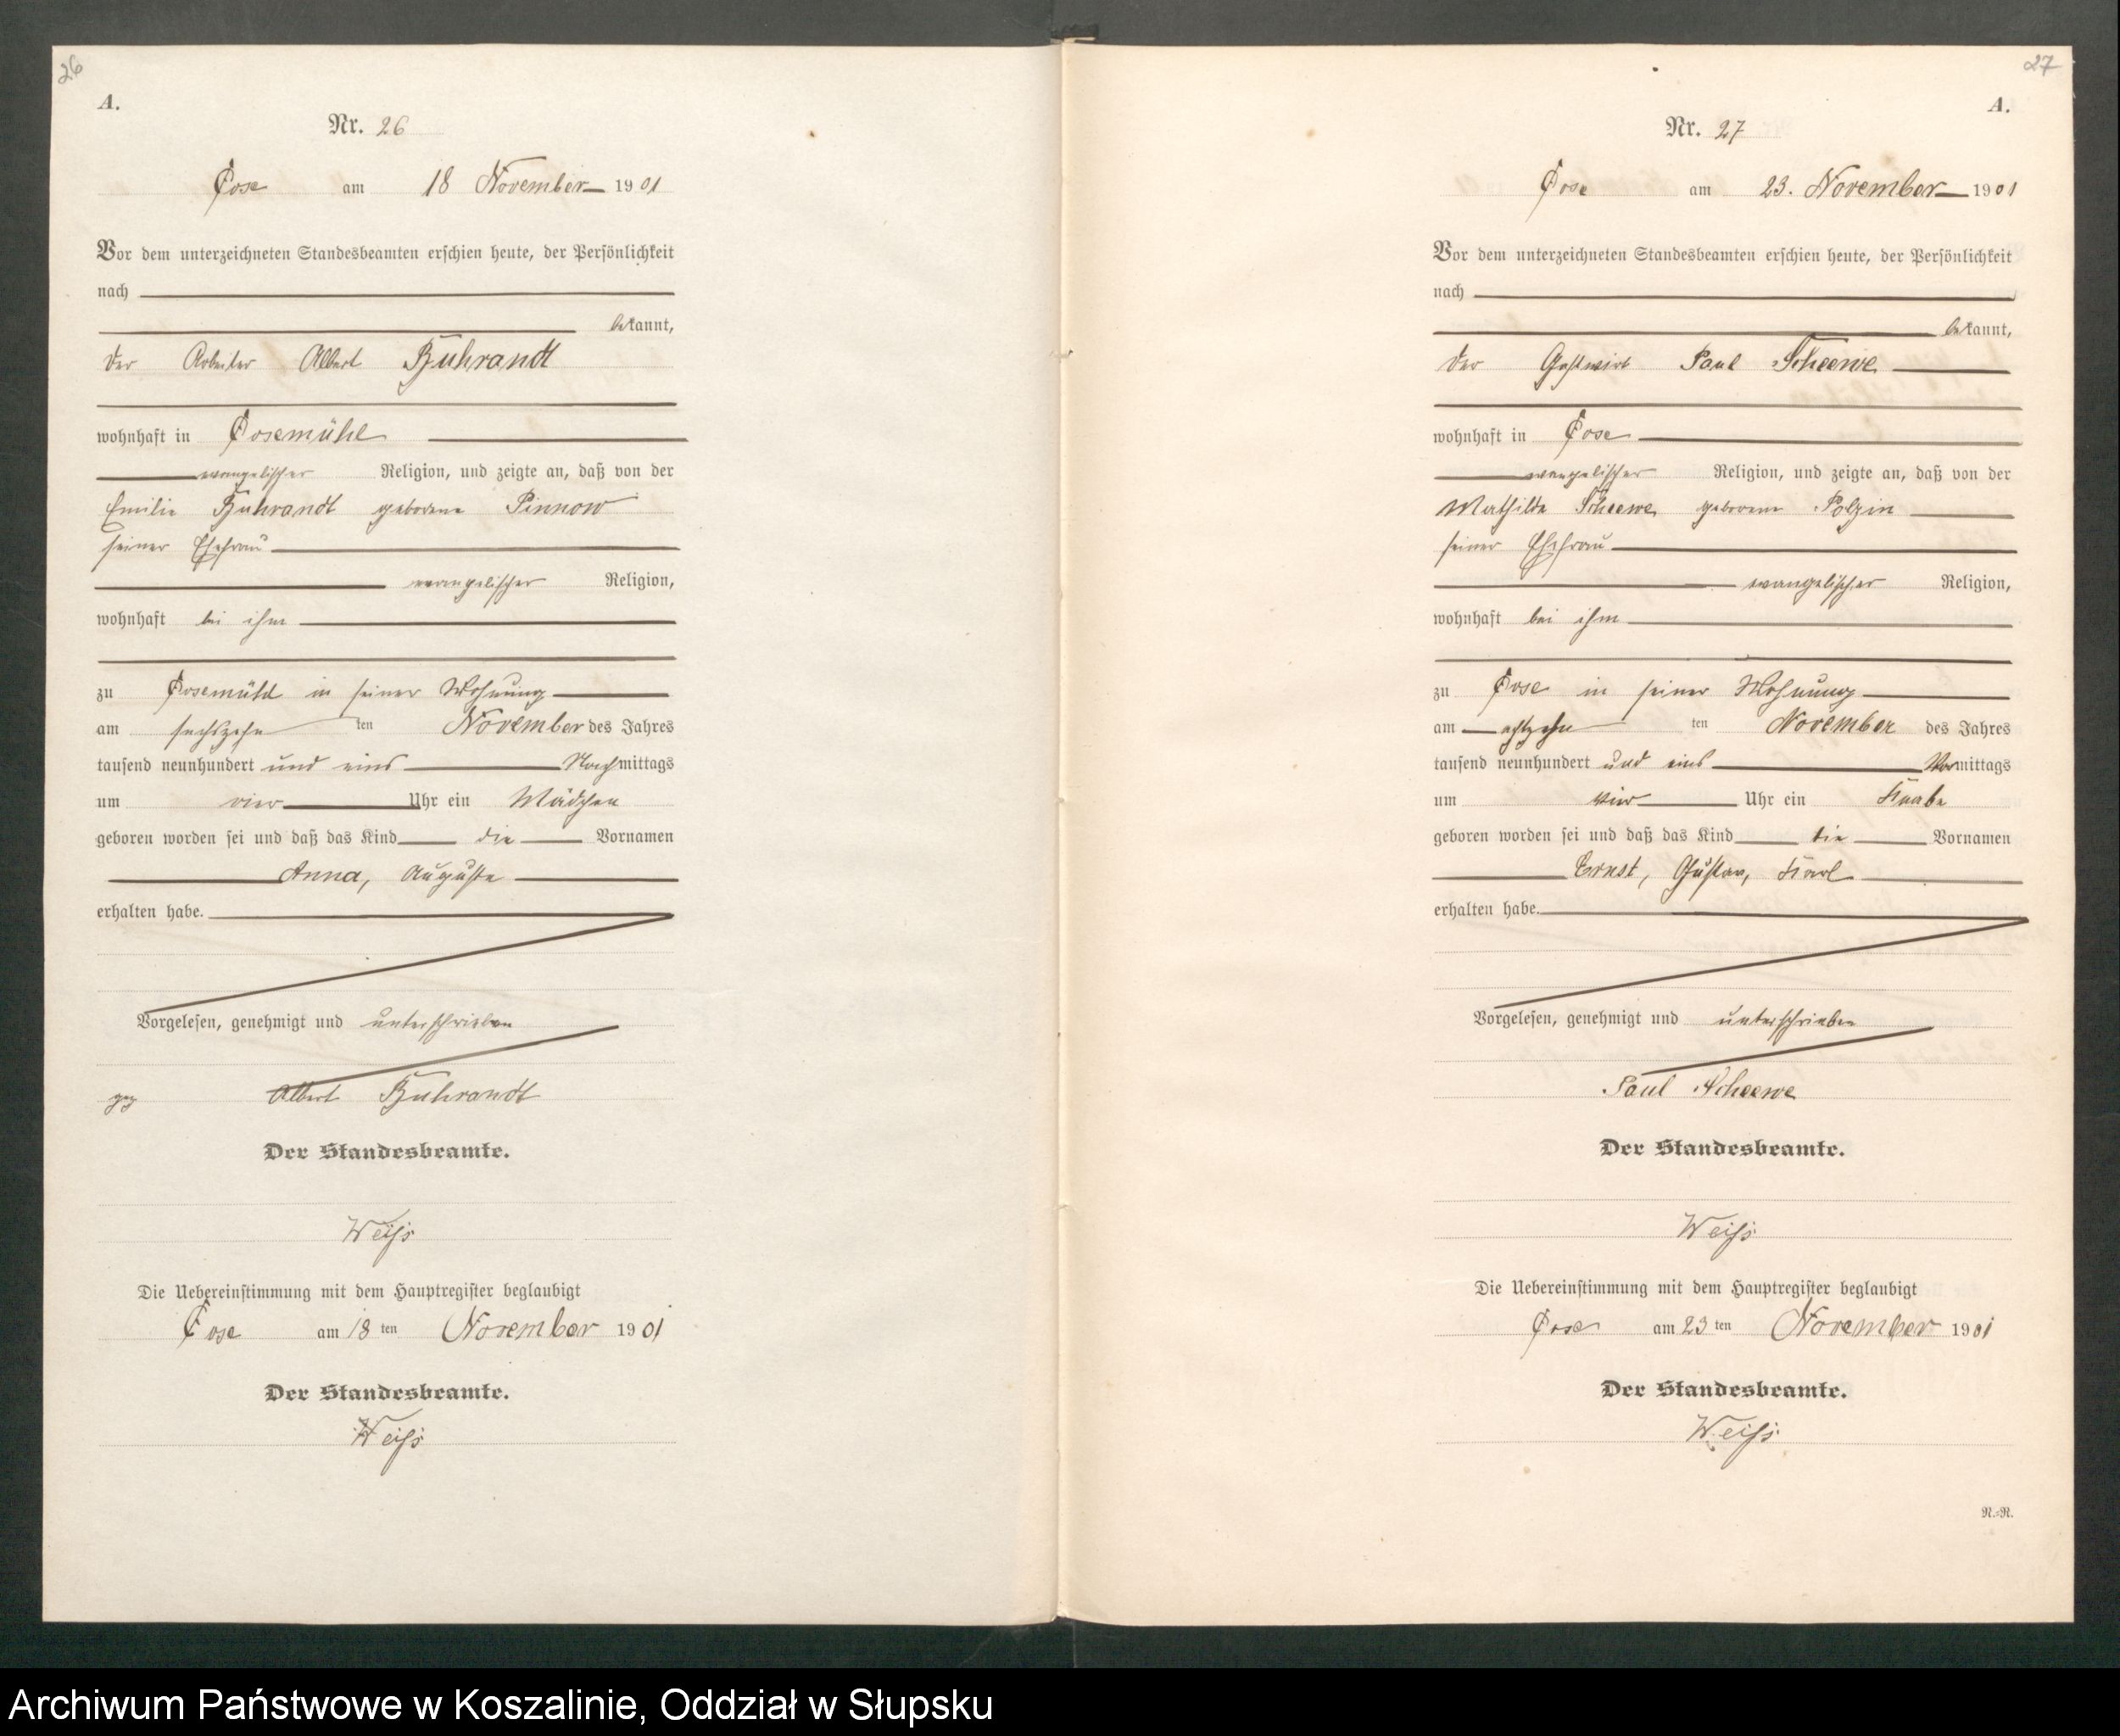 26
A.
Nr. 26
Cose am 18 November 1901
Vor dem unterzeichneten Standesbeamten erschien heute, der Persönlichkeit
nach
bekannt,
der Arbeiter Albert Buhrandt
wohnhaft in Cosemühl
evangelischer Religion, und zeigte an, daß von der
Emilie Buhrandt geborene Pinnow
seiner Ehefrau
evangelischer Religion,
wohnhaft bei ihm
zu Cosemühl in seiner Wohnung
am sechszehnten November des Jahres
tausend neunhundert und eins Nachmittags
um vier Uhr ein Mädchen
geboren worden sei und daß das Kind die Vornamen
Anna, Auguste
erhalten habe.
Vorgelesen, genehmigt und unterschrieben
gez Albert Buhrandt
Der Standesbeamte.
Weiß
Die Uebereinstimmung mit dem Hauptregister beglaubigt
Cose am 18ten November 1901
Der Standesbeamte.
Weiß
27
A.
Nr. 27
Cose am 23. November 1901
Vor dem unterzeichneten Standesbeamten erschien heute, der Persönlichkeit
nach
bekannt,
der Gastwirt Paul Scheewe
wohnhaft in Cose
evangelischer Religion, und zeigte an, daß von der
Mathilde Scheewe geborene Polzin
seiner Ehefrau
evangelischer Religion,
wohnhaft bei ihm
zu Cose in seiner Wohnung
am achtzehnten November des Jahres
tausend neunhundert und eins Vormittags
um vier Uhr ein Knabe
geboren worden sei und daß das Kind die Vornamen
Ernst, Gustav, Karl
erhalten habe.
Vorgelesen, genehmigt und unterschrieben
Paul Scheewe
Der Standesbeamte.
Weiß
Die Uebereinstimmung mit dem Hauptregister beglaubigt
Cose am 23ten November 1901
Der Standesbeamte.
Weiß
N.-R.
Archiwum Państwowe w Koszalinie, Oddział w Słupsku